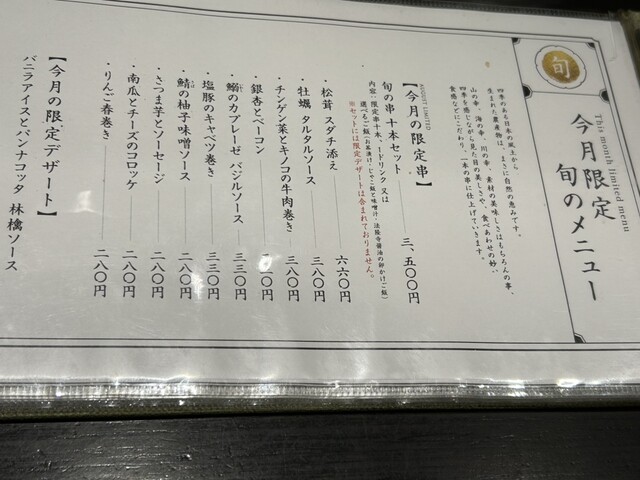 旬
This month limited menu
今月限定
旬のメニュー
四季のある日本の風土から
生まれた農産物は、まさに自然の恵みです。
山の幸、海の幸、川の幸、素材の美味しさはもちろんの事、
四季を感じながら見た目の美しさや、食べあわせの妙い
食感などにこだわり、一本の串に仕上げています。
【今月の限定串】
AUGUST LIMITED
旬の串十本セット 三、五〇〇円
内容:限定串十本、1ドリンク 又は
選べるご飯(お茶漬け、じゃこ飯と味噌汁、法隆寺醤油の卵かけご飯)
※セットには限定デザートは含まれておりません。
・松茸 スダチ添え 六六〇円
・牡蠣 タルタルソース 三八〇円
・チンゲン菜とキノコの牛肉巻き 三八〇円
・銀杏とベーコン 二八〇円
・鰯のカプレーゼ バジルソース 三三〇円
・塩豚のキャベツ巻き 三三〇円
・鯖の柚子味噌ソース 二八〇円
・さつま芋とソーセージ 二八〇円
・南瓜とチーズのコロッケ 二八〇円
・りんご春巻き 二八〇円
【今月の限定デザート】
バニラアイスとパンナコッタ 林檎ソース